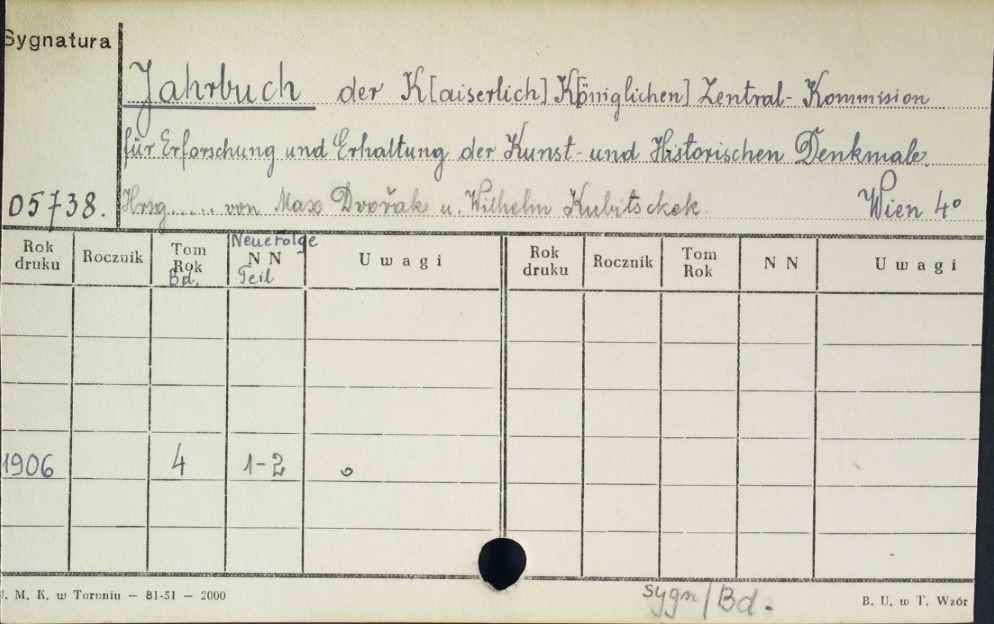 Sygnatura
Jahrbuch der K[aiserlich] K[öniglichen] Zentral-Kommission
für Erforschung und Erhaltung der Kunst- und Historischen Denkmale.
05738. Hrsg..... von Max Dvořák u. Wilhelm Kubitschek. Wien 4°
Rok druku Rocznik Tom Rok Bd. Neue Folge NN Teil Uwagi Rok druku Rocznik Tom Rok NN Uwagi
1906 4 1-2
M. K. w Toruniu — 81-51 — 2000 sygn/Bd. B. U. w T. Wzór